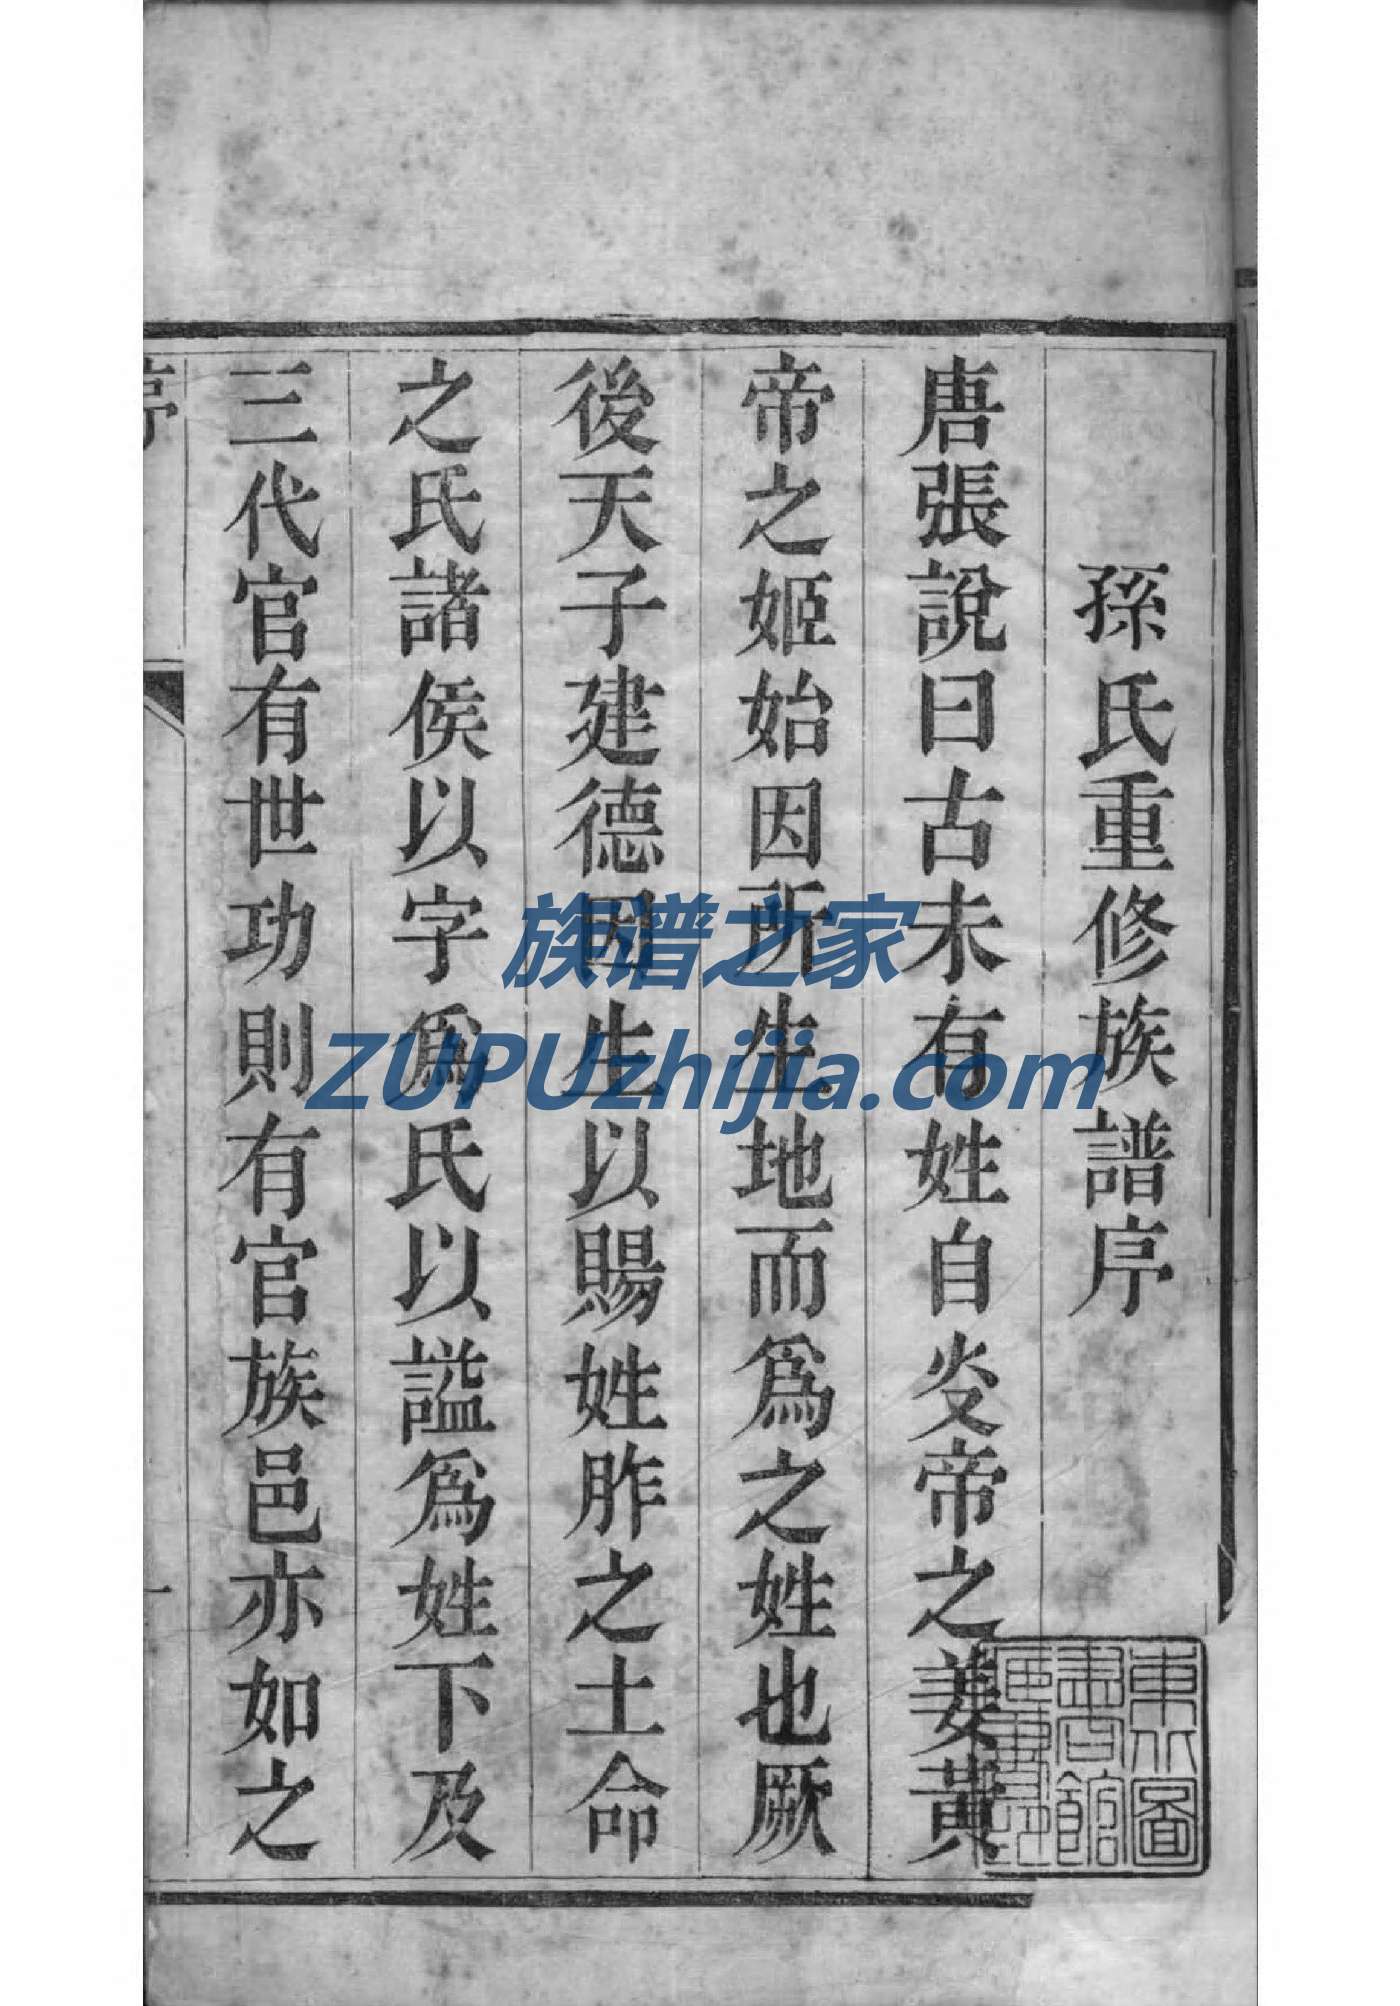 孫氏重修族譜序
唐張說曰古未有姓自炎帝之姜黃
帝之姬始因所生地而爲之姓也厥
後天子建德因生以賜姓胙之土命
之氏諸侯以字爲氏以謚爲姓下及
三代官有世功則有官族邑亦如之
族谱之家
ZUPUzhijia.com